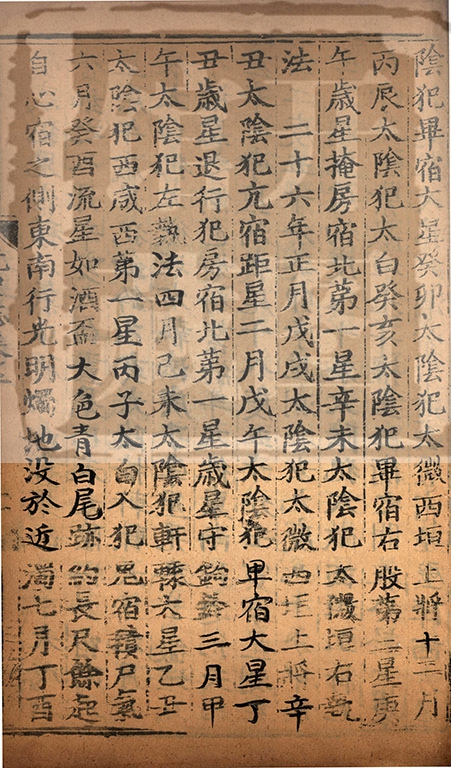 陰犯畢宿大星癸卯太陰犯太微西垣上將十二月
丙辰太陰犯太白癸亥太陰犯畢宿右股第二星庚
午歲星掩房宿北第一星辛未太陰犯太微垣右執
法　二十六年正月戊戌太陰犯太微西垣上將辛
丑太陰犯亢宿距星二月戊午太陰犯畢宿大星丁
丑歲星退行犯房宿北第一星歲星守鉤鈐三月甲
午太陰犯左執法四月己未太陰犯軒轅大星乙丑
太陰犯西咸西第一星丙子太白入犯鬼宿積尸氣
六月癸酉流星如酒盃大色青白尾跡約長尺餘起
自心宿之側東南行光明燭地没於近濁七月丁酉